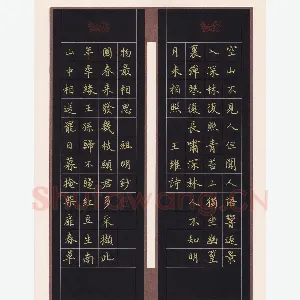 空山不見人但聞人語響返景
入深林復照青苔上獨坐幽篁
裏彈琴復長嘯深林人不知明
月來相照 王維詩
山中相送罷日暮掩柴扉春草
年年綠王孫歸不歸紅豆生南
國春來發幾枝願君多采擷此
物最相思 祖明抄